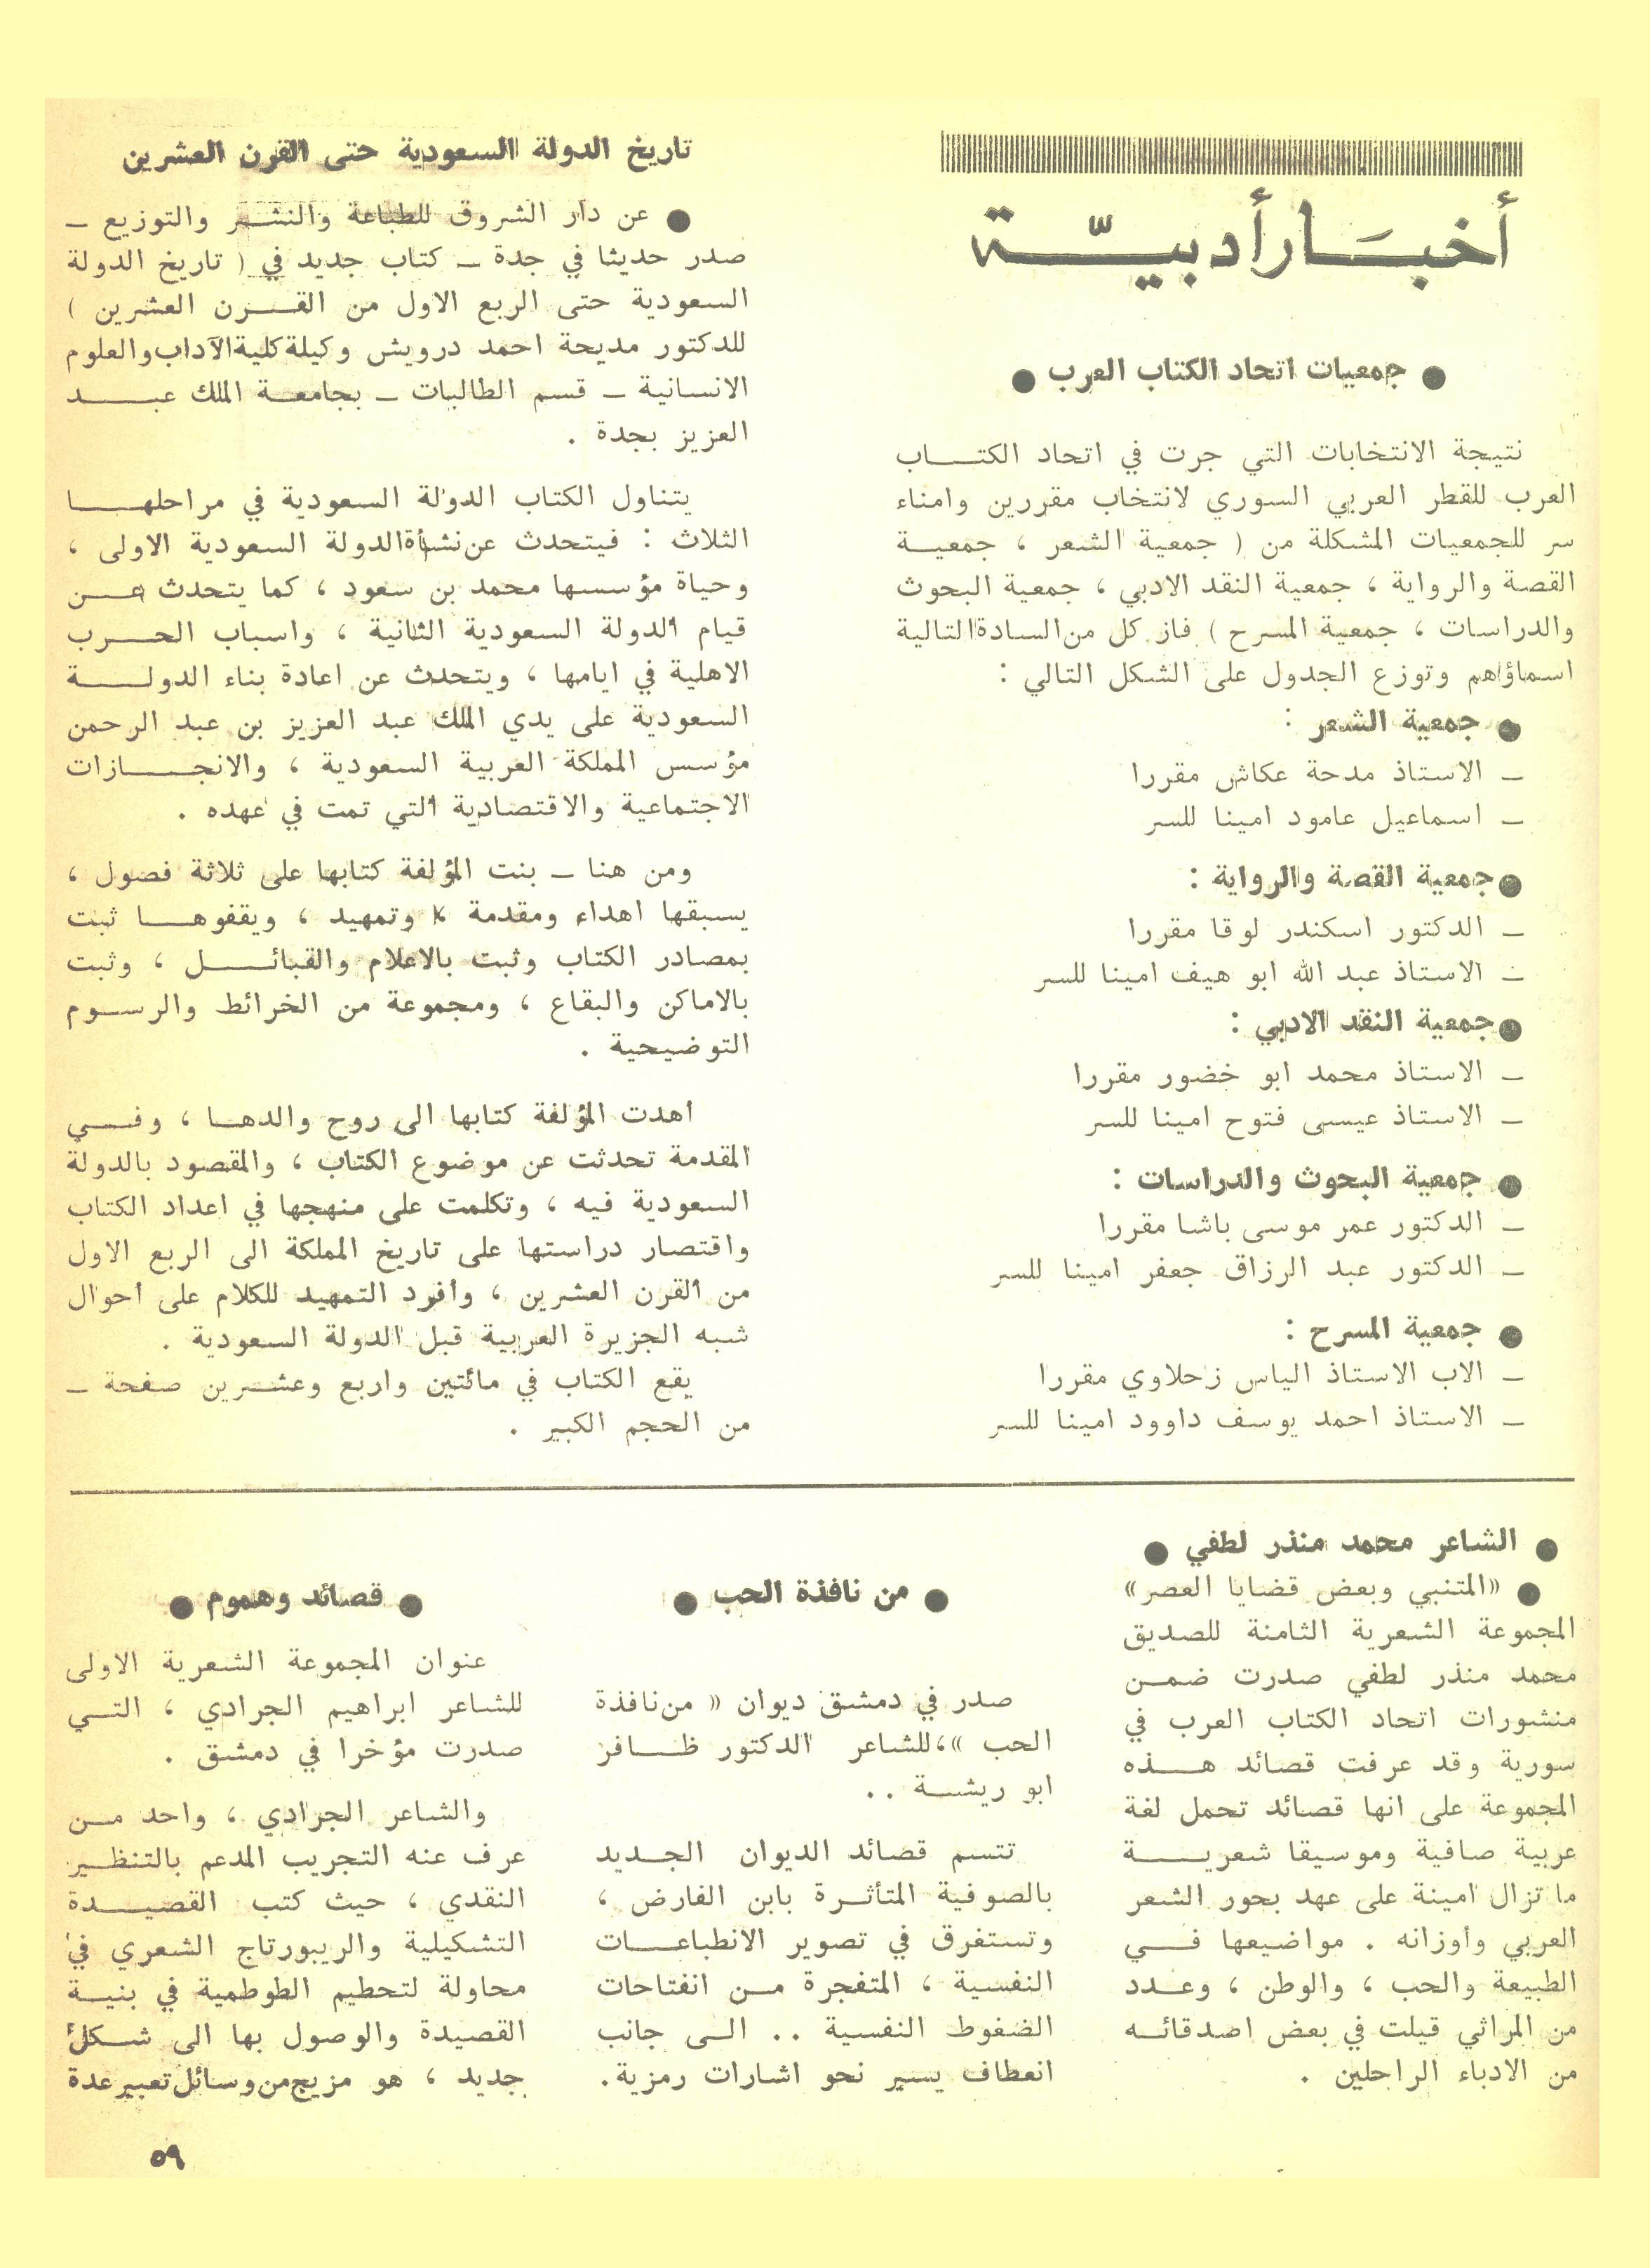 أخبار أدبيّة
● جمعيات اتحاد الكتاب العرب ●
نتيجة الانتخابات التي جرت في اتحاد الكتاب
العرب للقطر العربي السوري لانتخاب مقررين وامناء
سر للجمعيات المشكلة من ( جمعية الشعر ، جمعية
القصة والرواية ، جمعية النقد الادبي ، جمعية البحوث
والدراسات ، جمعية المسرح ) فاز كل من السادة التالية
اسماؤهم وتوزع الجدول على الشكل التالي :
● جمعية الشعر :
ـ الاستاذ مدحة عكاش مقررا
ـ اسماعيل عامود امينا للسر
● جمعية القصة والرواية :
ـ الدكتور اسكندر لوقا مقررا
ـ الاستاذ عبد الله ابو هيف امينا للسر
● جمعية النقد الادبي :
ـ الاستاذ محمد ابو خضور مقررا
ـ الاستاذ عيسى فتوح امينا للسر
● جمعية البحوث والدراسات :
ـ الدكتور عمر موسى باشا مقررا
ـ الدكتور عبد الرزاق جعفر امينا للسر
● جمعية المسرح :
ـ الاب الاستاذ الياس زحلاوي مقررا
ـ الاستاذ احمد يوسف داوود امينا للسر
تاريخ الدولة السعودية حتى القرن العشرين
● عن دار الشروق للطباعة والنشر والتوزيع ـ
صدر حديثا في جدة ـ كتاب جديد في ( تاريخ الدولة
السعودية حتى الربع الاول من القرن العشرين )
للدكتور مديحة احمد درويش وكيلة كلية الآداب والعلوم
الانسانية ـ قسم الطالبات ـ بجامعة الملك عبد
العزيز بجدة .
يتناول الكتاب الدولة السعودية في مراحلها
الثلاث : فيتحدث عن نشأة الدولة السعودية الاولى ،
وحياة مؤسسها محمد بن سعود ، كما يتحدث عن
قيام الدولة السعودية الثانية ، واسباب الحرب
الاهلية في ايامها ، ويتحدث عن اعادة بناء الدولة
السعودية على يدي الملك عبد العزيز بن عبد الرحمن
مؤسس المملكة العربية السعودية ، والانجازات
الاجتماعية والاقتصادية التي تمت في عهده .
ومن هنا ـ بنت المؤلفة كتابها على ثلاثة فصول ،
يسبقها اهداء ومقدمة ، وتمهيد ، ويقفوها ثبت
بمصادر الكتاب وثبت بالاعلام والقبائل ، وثبت
بالاماكن والبقاع ، ومجموعة من الخرائط والرسوم
التوضيحية .
أهدت المؤلفة كتابها الى روح والدها ، وفي
المقدمة تحدثت عن موضوع الكتاب ، والمقصود بالدولة
السعودية فيه ، وتكلمت على منهجها في اعداد الكتاب
واقتصار دراستها على تاريخ المملكة الى الربع الاول
من القرن العشرين ، وأفرد التمهيد للكلام على أحوال
شبه الجزيرة العربية قبل الدولة السعودية .
يقع الكتاب في مائتين واربع وعشرين صفحة ـ
من الحجم الكبير .
● الشاعر محمد منذر لطفي ●
● «المتنبي وبعض قضايا العصر»
المجموعة الشعرية الثامنة للصديق
محمد منذر لطفي صدرت ضمن
منشورات اتحاد الكتاب العرب في
سورية وقد عرفت قصائد هذه
المجموعة على انها قصائد تحمل لغة
عربية صافية وموسيقا شعرية
ما تزال امينة على عهد بحور الشعر
العربي وأوزانه . مواضيعها في
الطبيعة والحب ، والوطن ، وعدد
من المراثي قيلت في بعض اصدقائه
من الادباء الراحلين .
● من نافذة الحب ●
صدر في دمشق ديوان « من نافذة
الحب »، للشاعر الدكتور ظافر
ابو ريشة . .
تتسم قصائد الديوان الجديد
بالصوفية المتأثرة بابن الفارض ،
وتستغرق في تصوير الانطباعات
النفسية ، المتفجرة من انفتاحات
الضغوط النفسية . . الى جانب
انعطاف يسير نحو اشارات رمزية.
● قصائد وهموم ●
عنوان المجموعة الشعرية الاولى
للشاعر ابراهيم الجرادي ، التي
صدرت مؤخرا في دمشق .
والشاعر الجرادي ، واحد من
عرف عنه التجريب المدعم بالتنظير
النقدي ، حيث كتب القصيدة
التشكيلية والريبورتاج الشعري في
محاولة لتحطيم الطوطمية في بنية
القصيدة والوصول بها الى شكل
جديد ، هو مزيج من وسائل تعبير عدة
٥٩